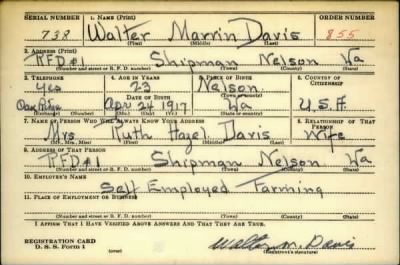 SERIAL NUMBER 1. NAME (Print) ORDER NUMBER
738 Walter Marrin Davis 855
(First) (Middle) (Last)
2. ADDRESS (Print)
RFD#1 Shipman Nelson Va
(Number and street or R. F. D. number) (Town) (County) (State)
3. TELEPHONE 4. AGE IN YEARS 5. PLACE OF BIRTH 6. COUNTRY OF CITIZENSHIP
yes 23 Nelson
DATE OF BIRTH (Town or county)
Apr 24 1917 Va U.S.A
(Exchange) (Number) (Mo.) (Day) (Yr.) (State or country)
7. NAME OF PERSON WHO WILL ALWAYS KNOW YOUR ADDRESS 8. RELATIONSHIP OF THAT PERSON
Mrs Ruth Hazel Davis Wife
(Mr., Mrs., Miss) (First) (Middle) (Last)
9. ADDRESS OF THAT PERSON
RFD#1 Shipman Nelson Va
(Number and street or R. F. D. number) (Town) (County) (State)
10. EMPLOYER'S NAME
Self Employed Farming
11. PLACE OF EMPLOYMENT OR BUSINESS
(Number and street or R. F. D. number) (Town) (County) (State)
I AFFIRM THAT I HAVE VERIFIED ABOVE ANSWERS AND THAT THEY ARE TRUE.
REGISTRATION CARD
D. S. S. Form 1 Walter M. Davis
(Registrant's signature)